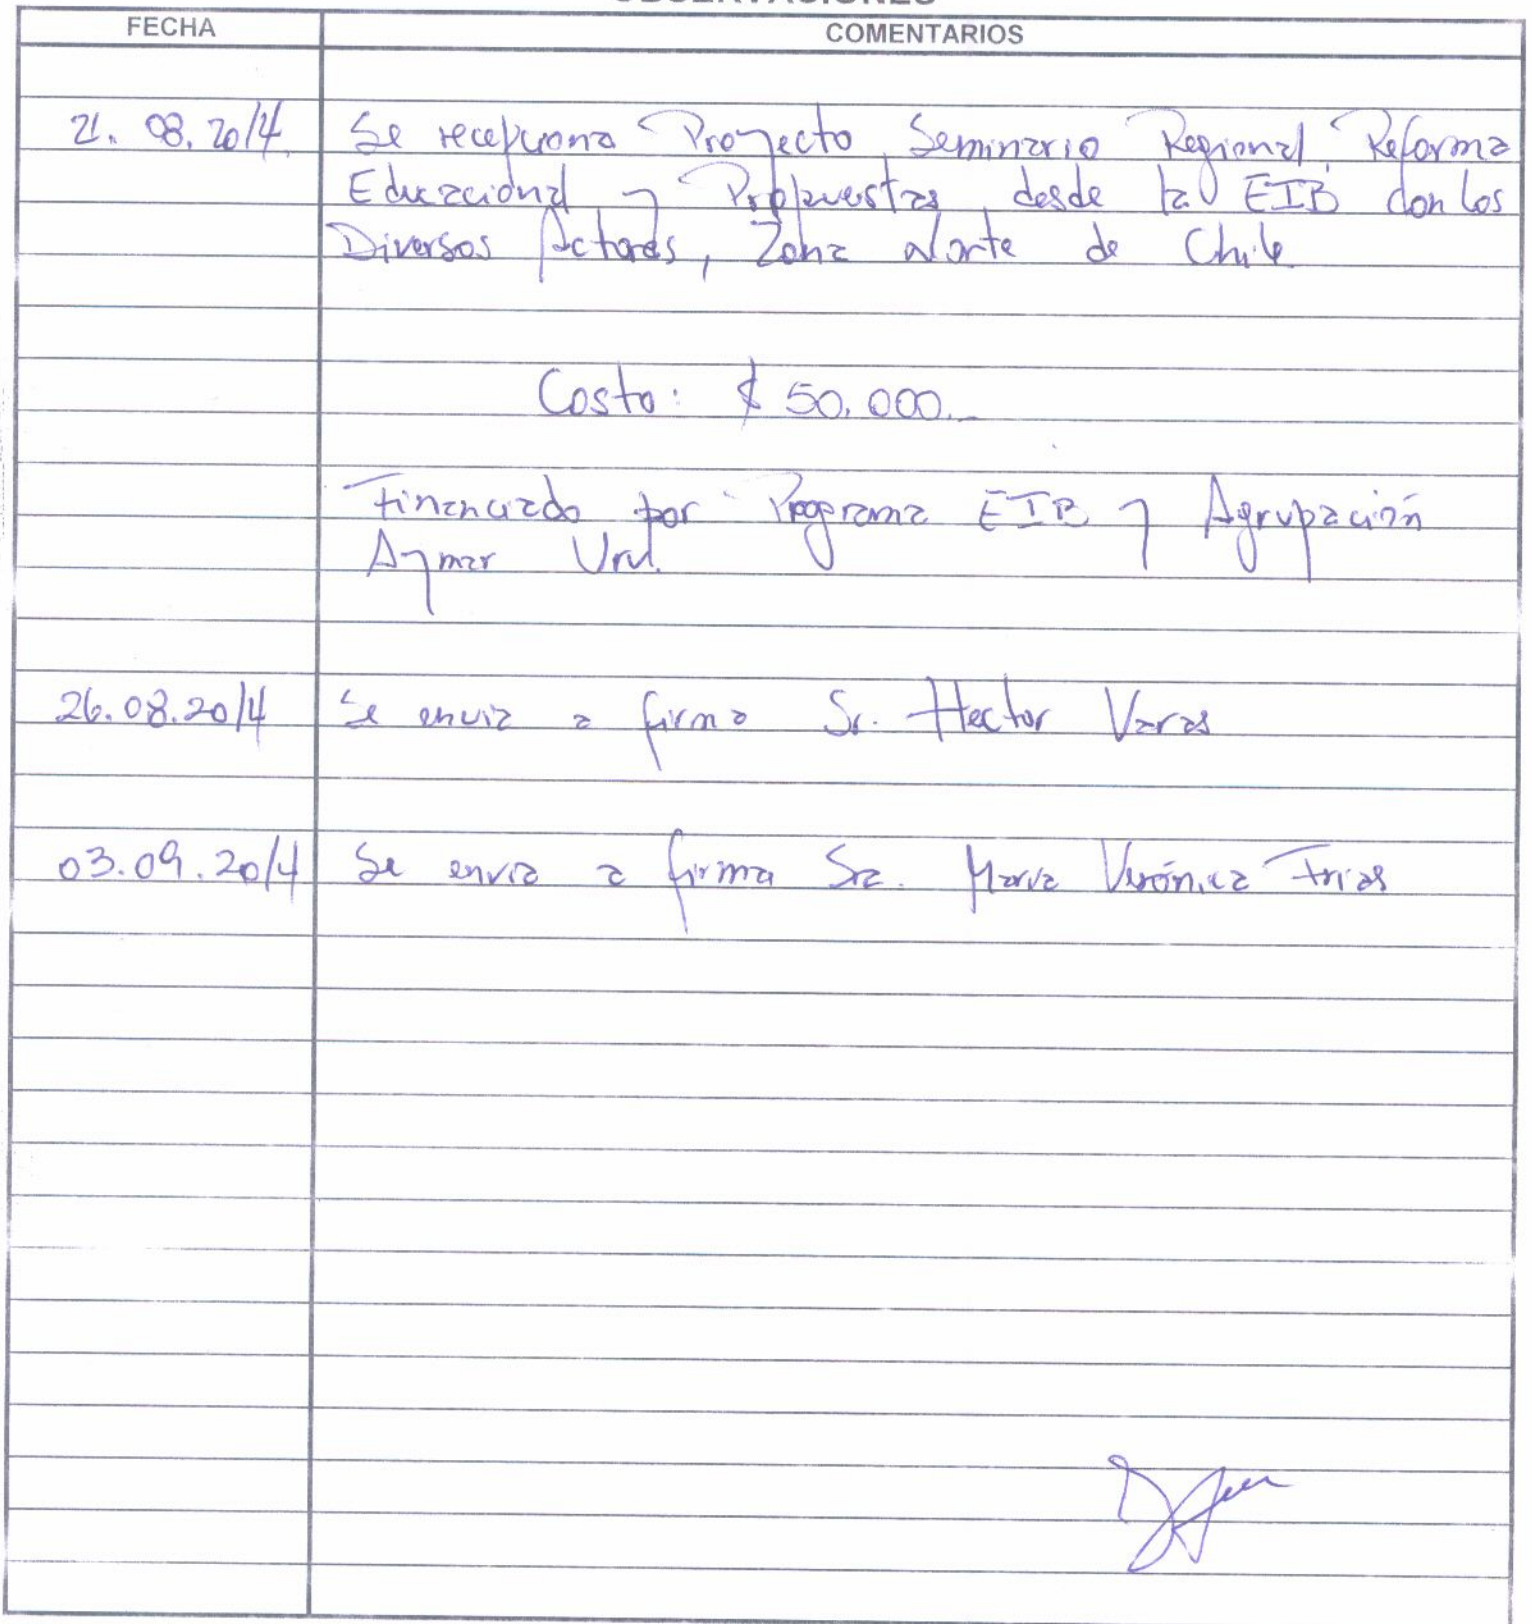 OBSERVACIONES
FECHA COMENTARIOS
21. 08. 2014. Se recepciona Proyecto, Seminario Regional, Reforma
Educacional y Propuestas desde la EIB con los
Diversos Actores, Zona Norte de Chile
Costo: $ 50.000.-
Financiado por Programa EIB y Agrupación
Aymar Uru.
26.08.2014 Se envia a firma Sr. Hector Varas
03.09.2014 Se envia a firma Sra. Maria Verónica Frias